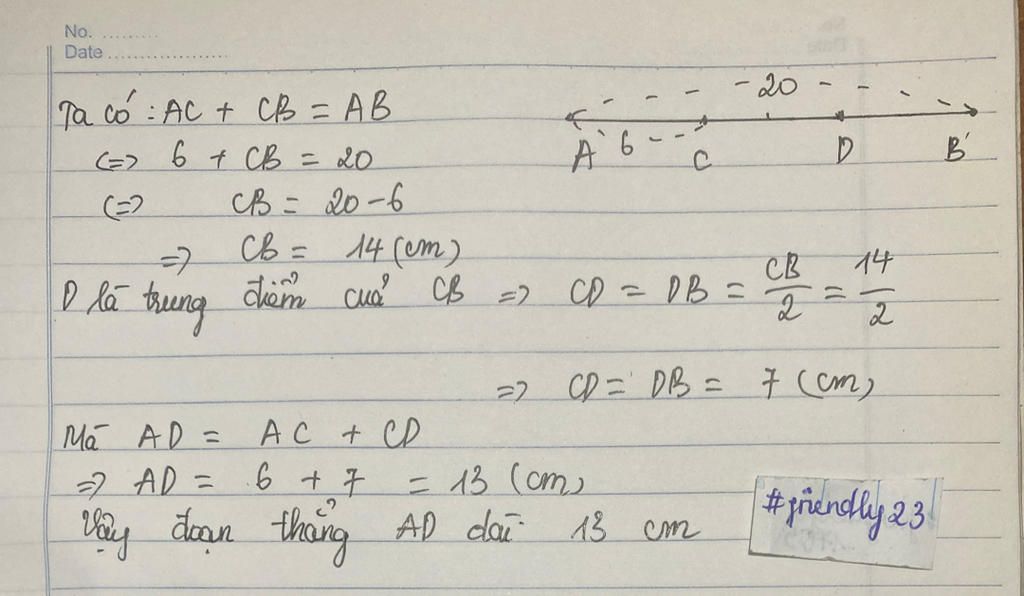 No. .........
Date ...................
Ta có : AC + CB = AB
<=> 6 + CB = 20
<=> CB = 20 - 6
=> CB = 14 (cm)
- 20 -
6
A C D B
D là trung điểm cuả CB => CD = DB = CB/2 = 14/2
=> CD = DB = 7 (cm)
Mà AD = AC + CD
=> AD = 6 + 7 = 13 (cm)
Vậy đoạn thẳng AD dài 13 cm
#friendly23